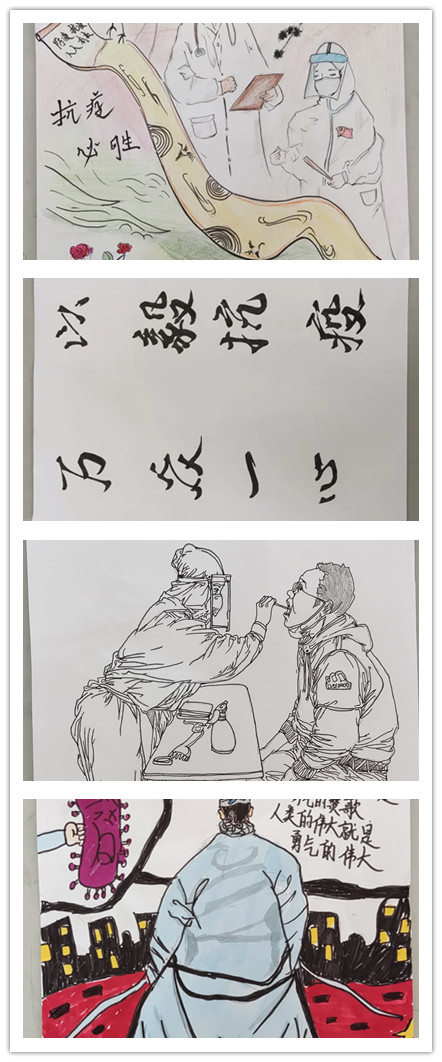 抗疫
必胜
以毅抗疫
万众一心
的赞歌
人类的伟大就是
勇气的伟大